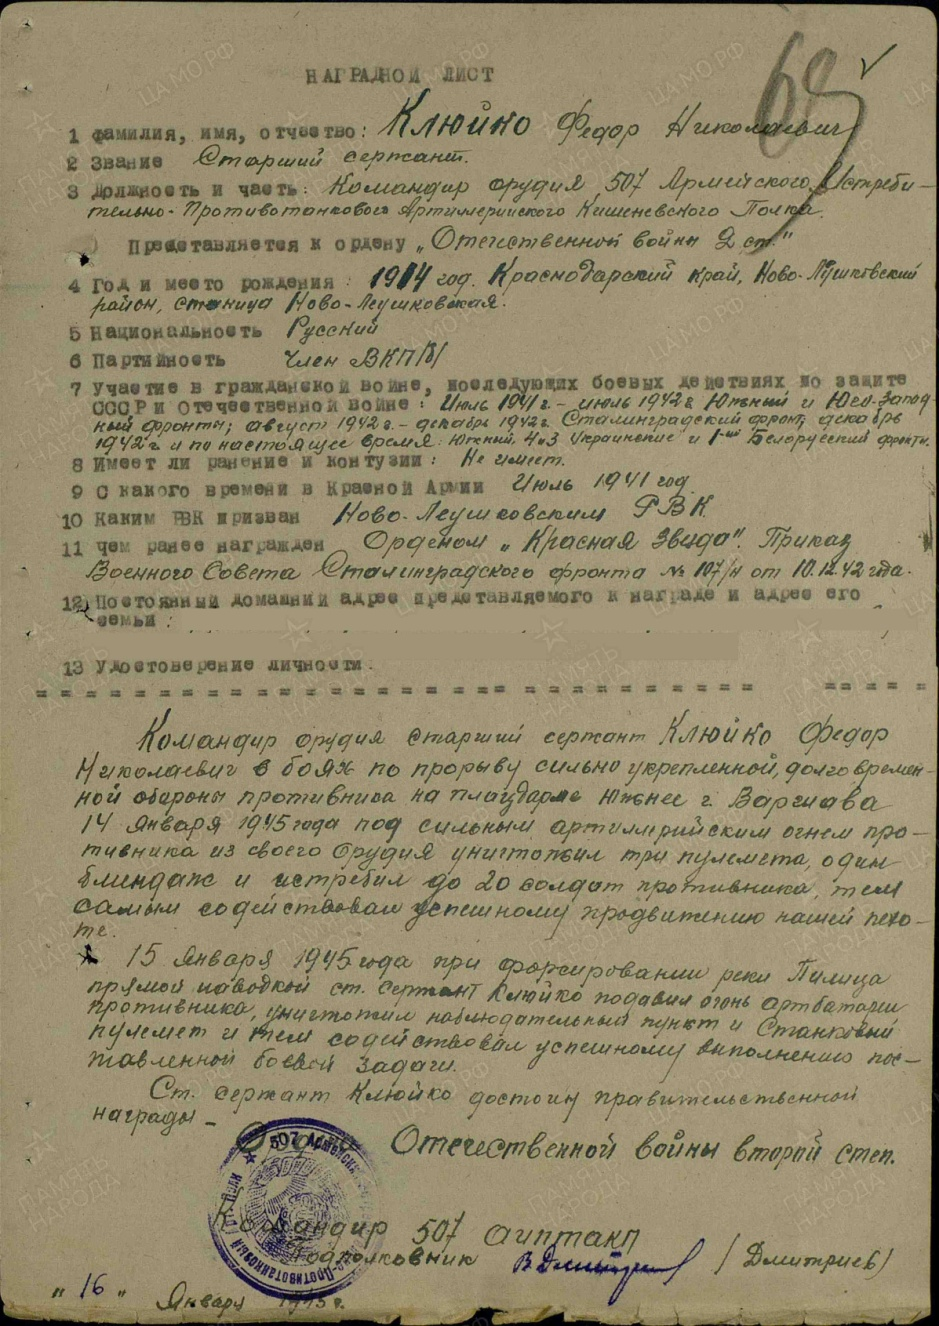 69
НАГРАДНОЙ ЛИСТ
1 фамилия, имя, отчество: Клюйко Федор Николаевич
2 Звание Старший сержант.
3 Должность и часть: Командир орудия 507 Армейского Истреби-
тельно-Противотанкового Артиллерийского Кишеневского Полка.
Представляется к ордену „Отечественной войны 2 ст."
4 Год и место рождения: 1914 год. Краснодарский край, Ново-Лушковский
район, станица Ново-Леушковская.
5 Национальность Русский
6 Партийность Член ВКП/б/
7 Участие в гражданской войне, последующих боевых действиях по защите
СССР и отечественной войне: Июль 1941 г. - июль 1942 г. Южный и Юго-Запад-
ный фронты; август 1942 г. - декабрь 1942 г. Сталинградский фронт; декабрь
1942 г. и по настоящее время: Южный, 4 и 3 Украинские и 1-ый Белорусский фронты.
8 Имеет ли ранение и контузии: Не имеет.
9 С какого времени в Красной Армии Июль 1941 год
10 Каким РВК призван Ново-Леушковским РВК
11 чем ранее награжден Орденом „Красная Звезда". Приказ
Военного Совета Сталинградского фронта № 107/н от 10.12.42 года.
12 Постоянный домашний адрес представляемого к награде и адрес его
семьи:
13 Удостоверение личности.
Командир орудия старший сержант Клюйко Федор
Николаевич в боях по прорыву сильно укрепленной, долговремен-
ной обороны противника на плацдарме южнее г. Варшава
14 января 1945 года под сильным артиллерийским огнем про-
тивника из своего орудия уничтожил три пулемета, один
блиндаж и истребил до 20 солдат противника, тем
самым содействовал успешному продвижению нашей пехо-
те.
15 января 1945 года при форсировании реки Пилица
прямой наводкой ст. сержант Клюйко подавил огонь артбатареи
противника, уничтожил наблюдательный пункт и Станковый
пулемет и тем содействовал успешному выполнению пос-
тавленной боевой задачи.
Ст. сержант Клюйко достоин правительственной
награды -
Отечественной войны второй степ.
Командир 507 аиптакп
Подполковник ВДмитриев /Дмитриев/
„16" Января 1945 г.